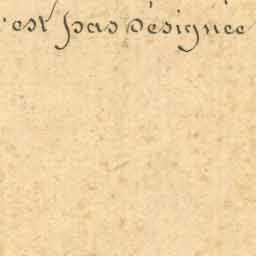 'est pas désignée